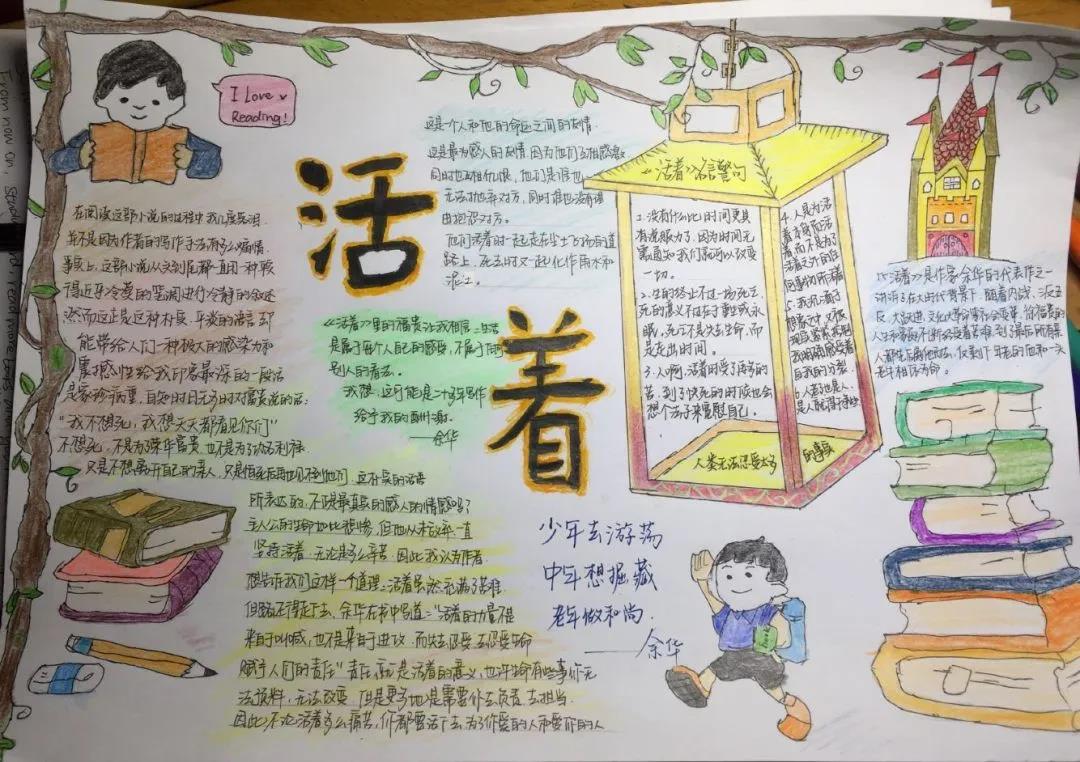 I Love
Reading!
活着
在阅读这部小说的过程中我几度哀泪
并不是因为作者的写作手法有多么煽情
事实上，这部小说从头到尾都一直用一种
得近乎冷漠的笔调进行冷静的叙述
然而这正是这种朴实、平淡的语言却
能带给人们一种极大的感染力和
震撼性给我印象最深的一段话
是家珍病重，自知时日无多时对福贵说的话：
“我不想死，我想天天都看见你们”
不想死，不是为荣华富贵，也不是为功名利禄
只是不想离开自己的亲人，只是怕死后再也见不到他们，这朴实的话语
所表达的，不正是最真实的感人的情感吗？
主人公的生命如此悲惨，但他从未放弃一直
坚持活着，无论是多么辛苦，因此我认为作者
想告诉我们这样一个道理：活着虽然充满了苦难
但路还得走下去、余华在书中写道：“活着的力量不是
来自叫喊，也不是来自于进攻，而是去忍受，去忍受生命
赋予人们的责任”责任，就是活着的意义，也许生命有些事你无
法预料，无法改变，但是更多地是需要你去负责，去担当
因此不论活着多么痛苦，你都要活下去，为了你爱的人和爱你的人
这是个人和他的命运之间的友情
这是最为感人的友情，因为他们互相感激
同时也互相仇恨，他们是谁也
无法抛弃对方，同时谁也没有理
由抱怨对方。
他们活着时一起走在尘土飞扬的道
路上，死去时又一起化作雨水和
泥土。
《活着》里的福贵让我相信：生活
是属于每个人自己的感受，不属于任何
别人的看法。
我想，这可能是二十多年写作
给予我的
——余华
《活着》名言警句
1. 没有什么比时间更具
有说服力了，因为时间无
需通知我们就可以改变
一切。
2. 生的终止不过一场死亡，
死的意义不过在于重生或永
眠，死亡不是失去生命，而
是走出时间。
3. 人啊，活着时受了再多的
苦，到了快死的时候也会
想个法子来宽慰自己。
4. 人是为活
着本身而活
着，而不是为了
活着之外的任
何事物所活着
5.
6. 人
人类无法忍受太多的真实
《活着》是作家余华的代表作之一
讲述了在大时代背景下，随着内战、三反五
反、大跃进、文化大革命等社会变革，徐福贵的
人生和家庭不断经受着苦难，到了最后所有亲
人都先后离他而去，仅剩下年老的他和一头
老牛相依为命。
少年去游荡
中年想掘藏
老年做和尚
——余华